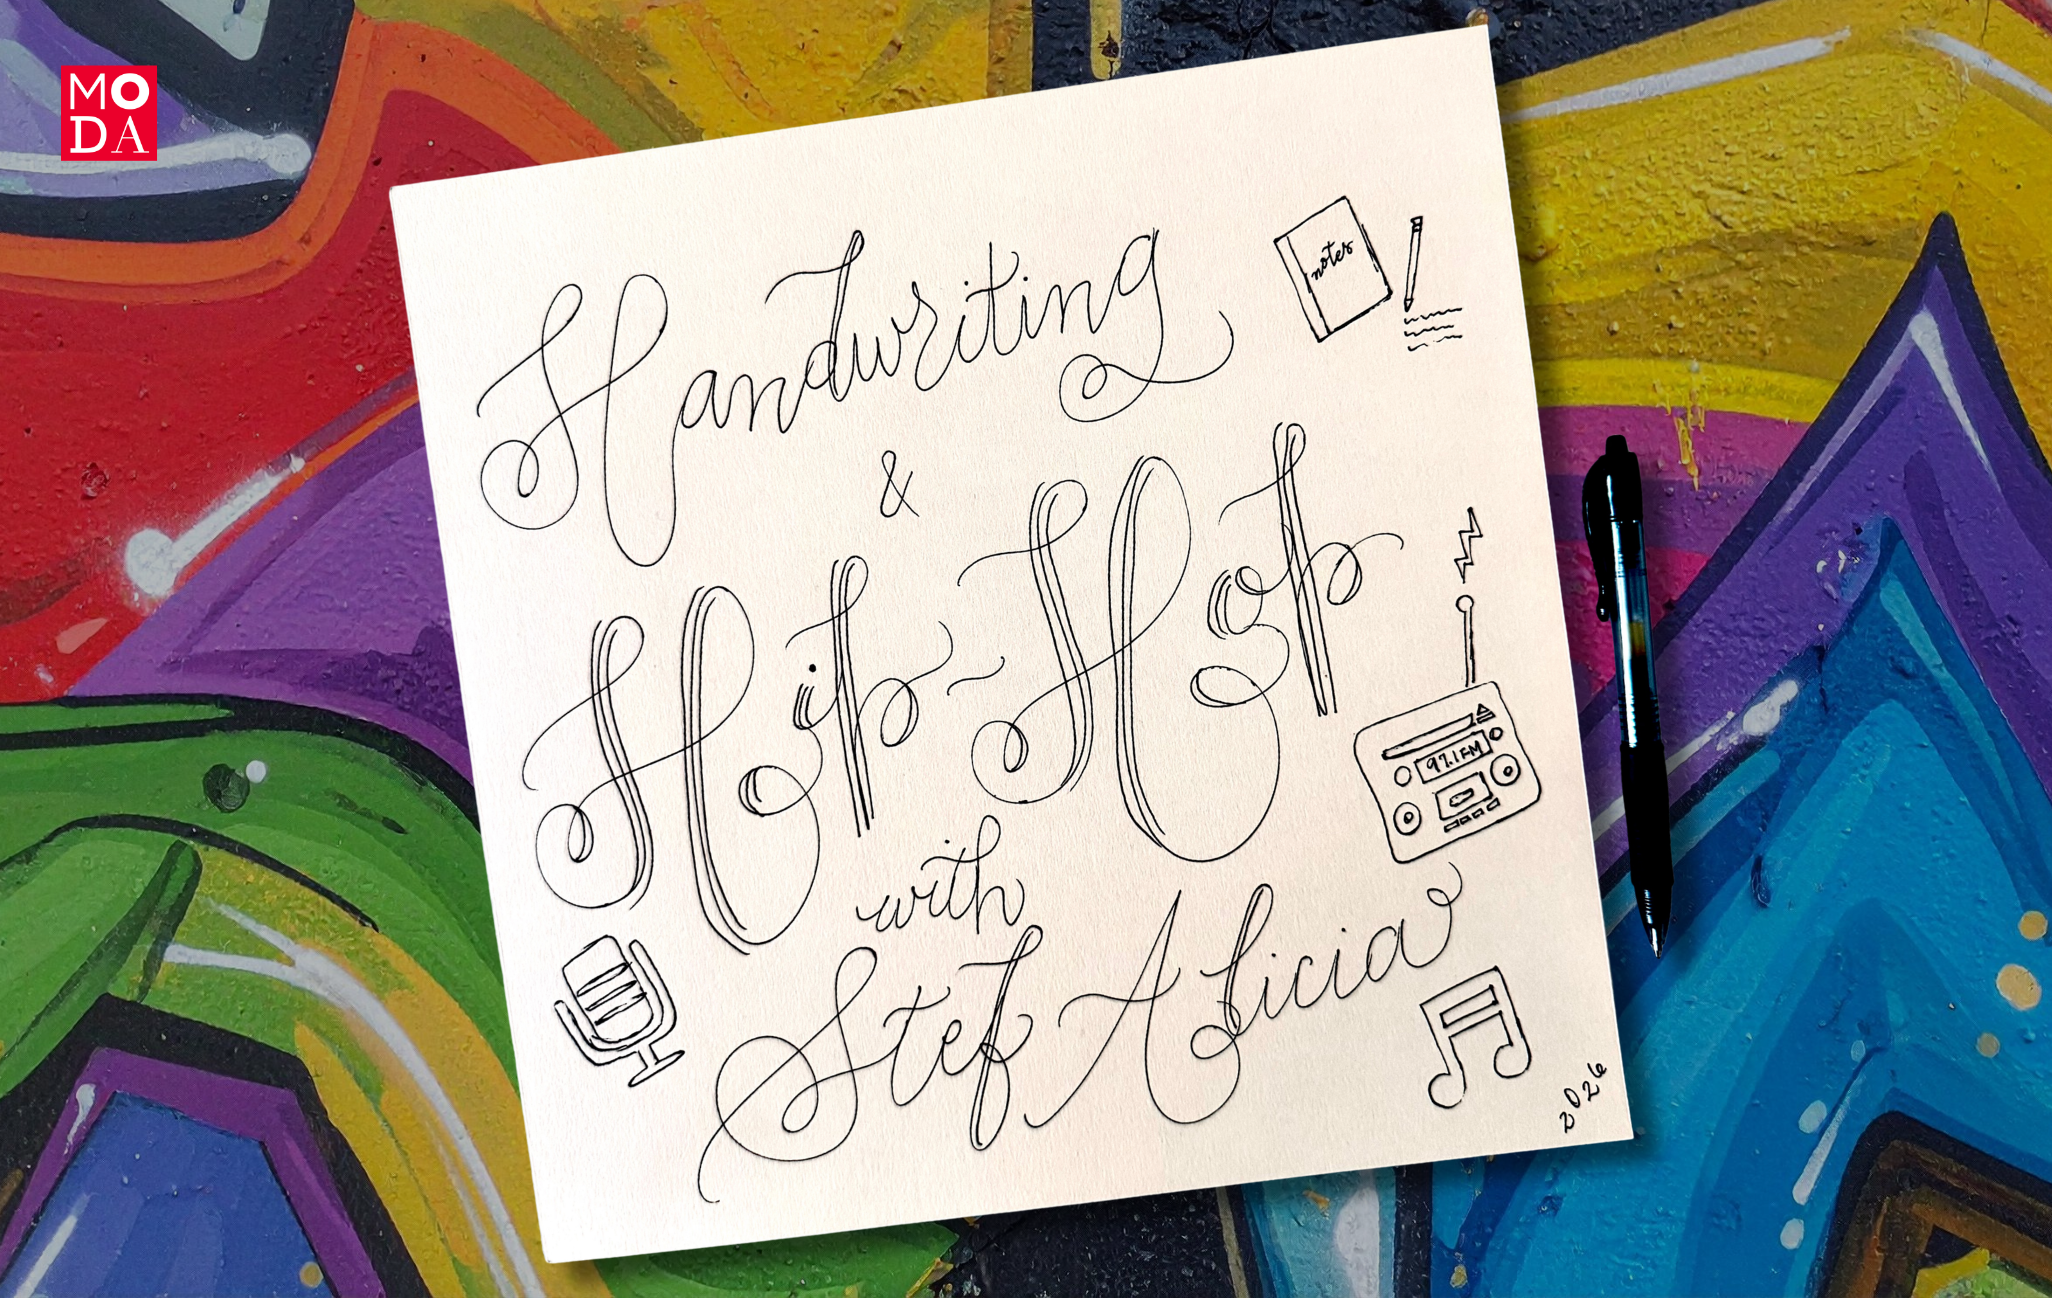 MO
DA
Handwriting
notes
&
Hip-Hop
97.1 FM
with
Stef Alicia
2026